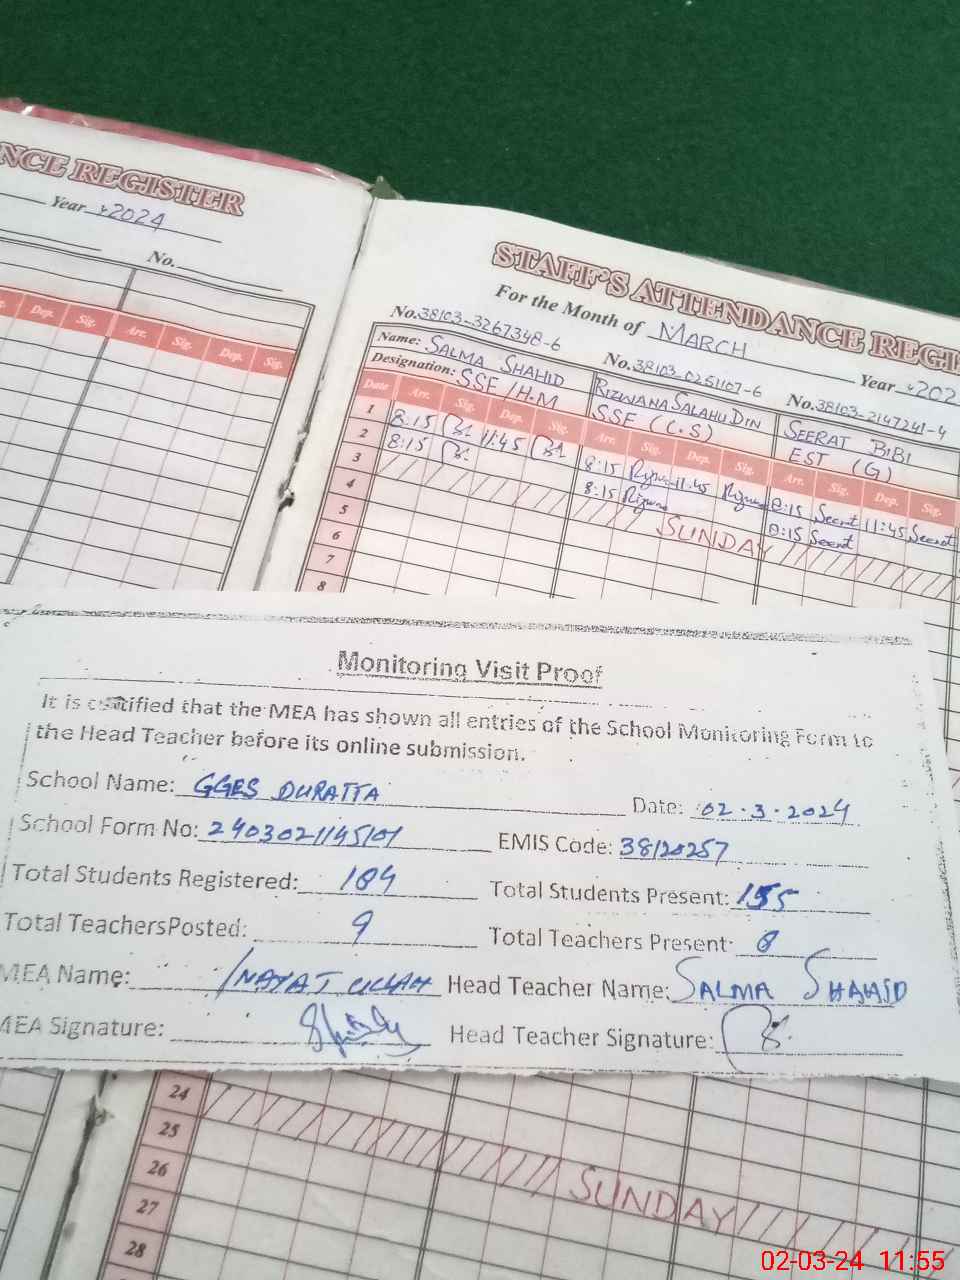 NCE REGISTER
Year 2024
No.
Dep. Sig. Arr. Sig. Dep. Sig.
STAFF'S ATTENDANCE REGI
For the Month of MARCH Year 202
No. 38103-3267348-6 No. 38103-0251107-6 No. 38103-2147241-4
Name: SALMA SHAHID RIZWANA SALAHUDIN SEERAT BIBI
Designation: SSE/H.M SSE (C.S) EST (G)
Date Arr. Sig. Dep. Sig. Arr. Sig. Dep. Sig. Arr. Sig. Dep. Sig.
1 8:15 11:45 8:15 11:45 8:15 Seerat 11:45 Seerat
2 8:15 8:15 8:15 Seerat
3 SUNDAY
4
5
6
7
8
Monitoring Visit Proof
It is certified that the MEA has shown all entries of the School Monitoring Form to
the Head Teacher before its online submission.
School Name: GGES DURATTA Date: 02.3.2024
School Form No: EMIS Code: 38120257
Total Students Registered: 184 Total Students Present: 155
Total TeachersPosted: 9 Total Teachers Present: 8
MEA Name: INAYAT ULLAH Head Teacher Name: SALMA SHAHID
MEA Signature: Head Teacher Signature:
24
25
26 SUNDAY
27
28
02-03-24 11:55